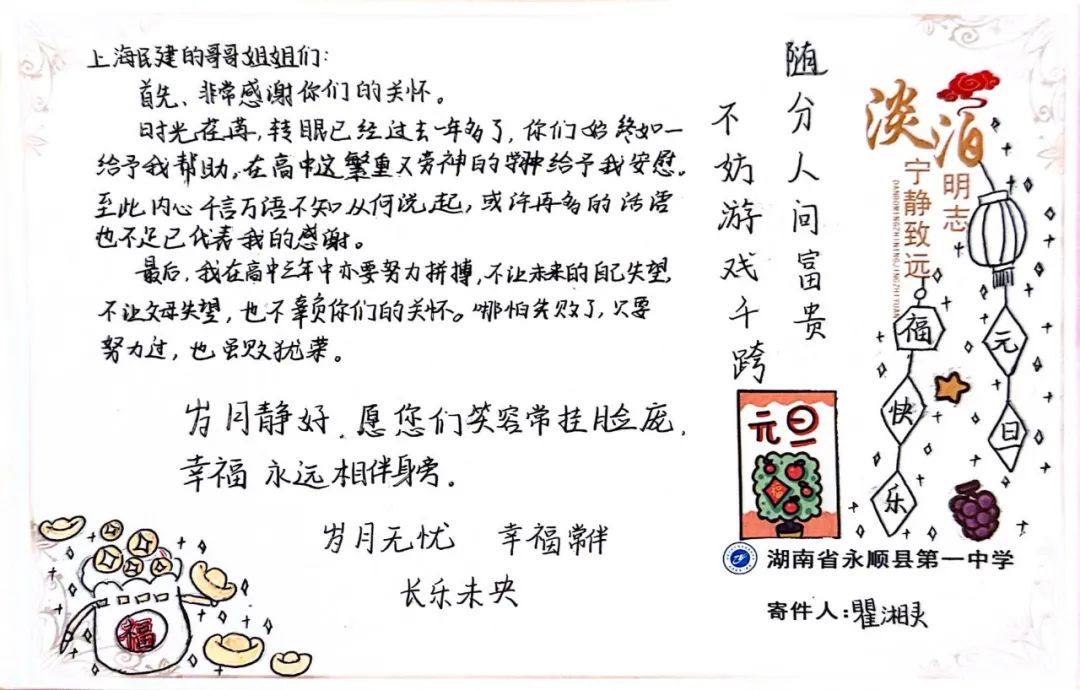 上海民建的哥哥姐姐们:
首先、非常感谢你们的关怀。
时光荏苒,转眼已经过去一年多了,你们始终如一
给予我帮助,在高中这繁重又劳神的学神给予我安慰。
至此内心千言万语不知从何说起,或许再多的话语
也不足已代表我的感谢。
最后,我在高中三年中亦要努力拼搏,不让未来的自己失望,
不让父母失望,也不辜负你们的关怀。哪怕失败了,只要
努力过,也虽败犹荣。
岁月静好.愿您们笑容常挂脸庞,
幸福永远相伴身旁。
岁月无忧 幸福常伴
长乐未央
随分人间富贵
不妨游戏千跨
淡泊
明志
宁静致远
DANBOMINGZHININGJINGZHIYUAN
福快乐
元旦
元旦
福
福
湖南省永顺县第一中学
寄件人:瞿湘